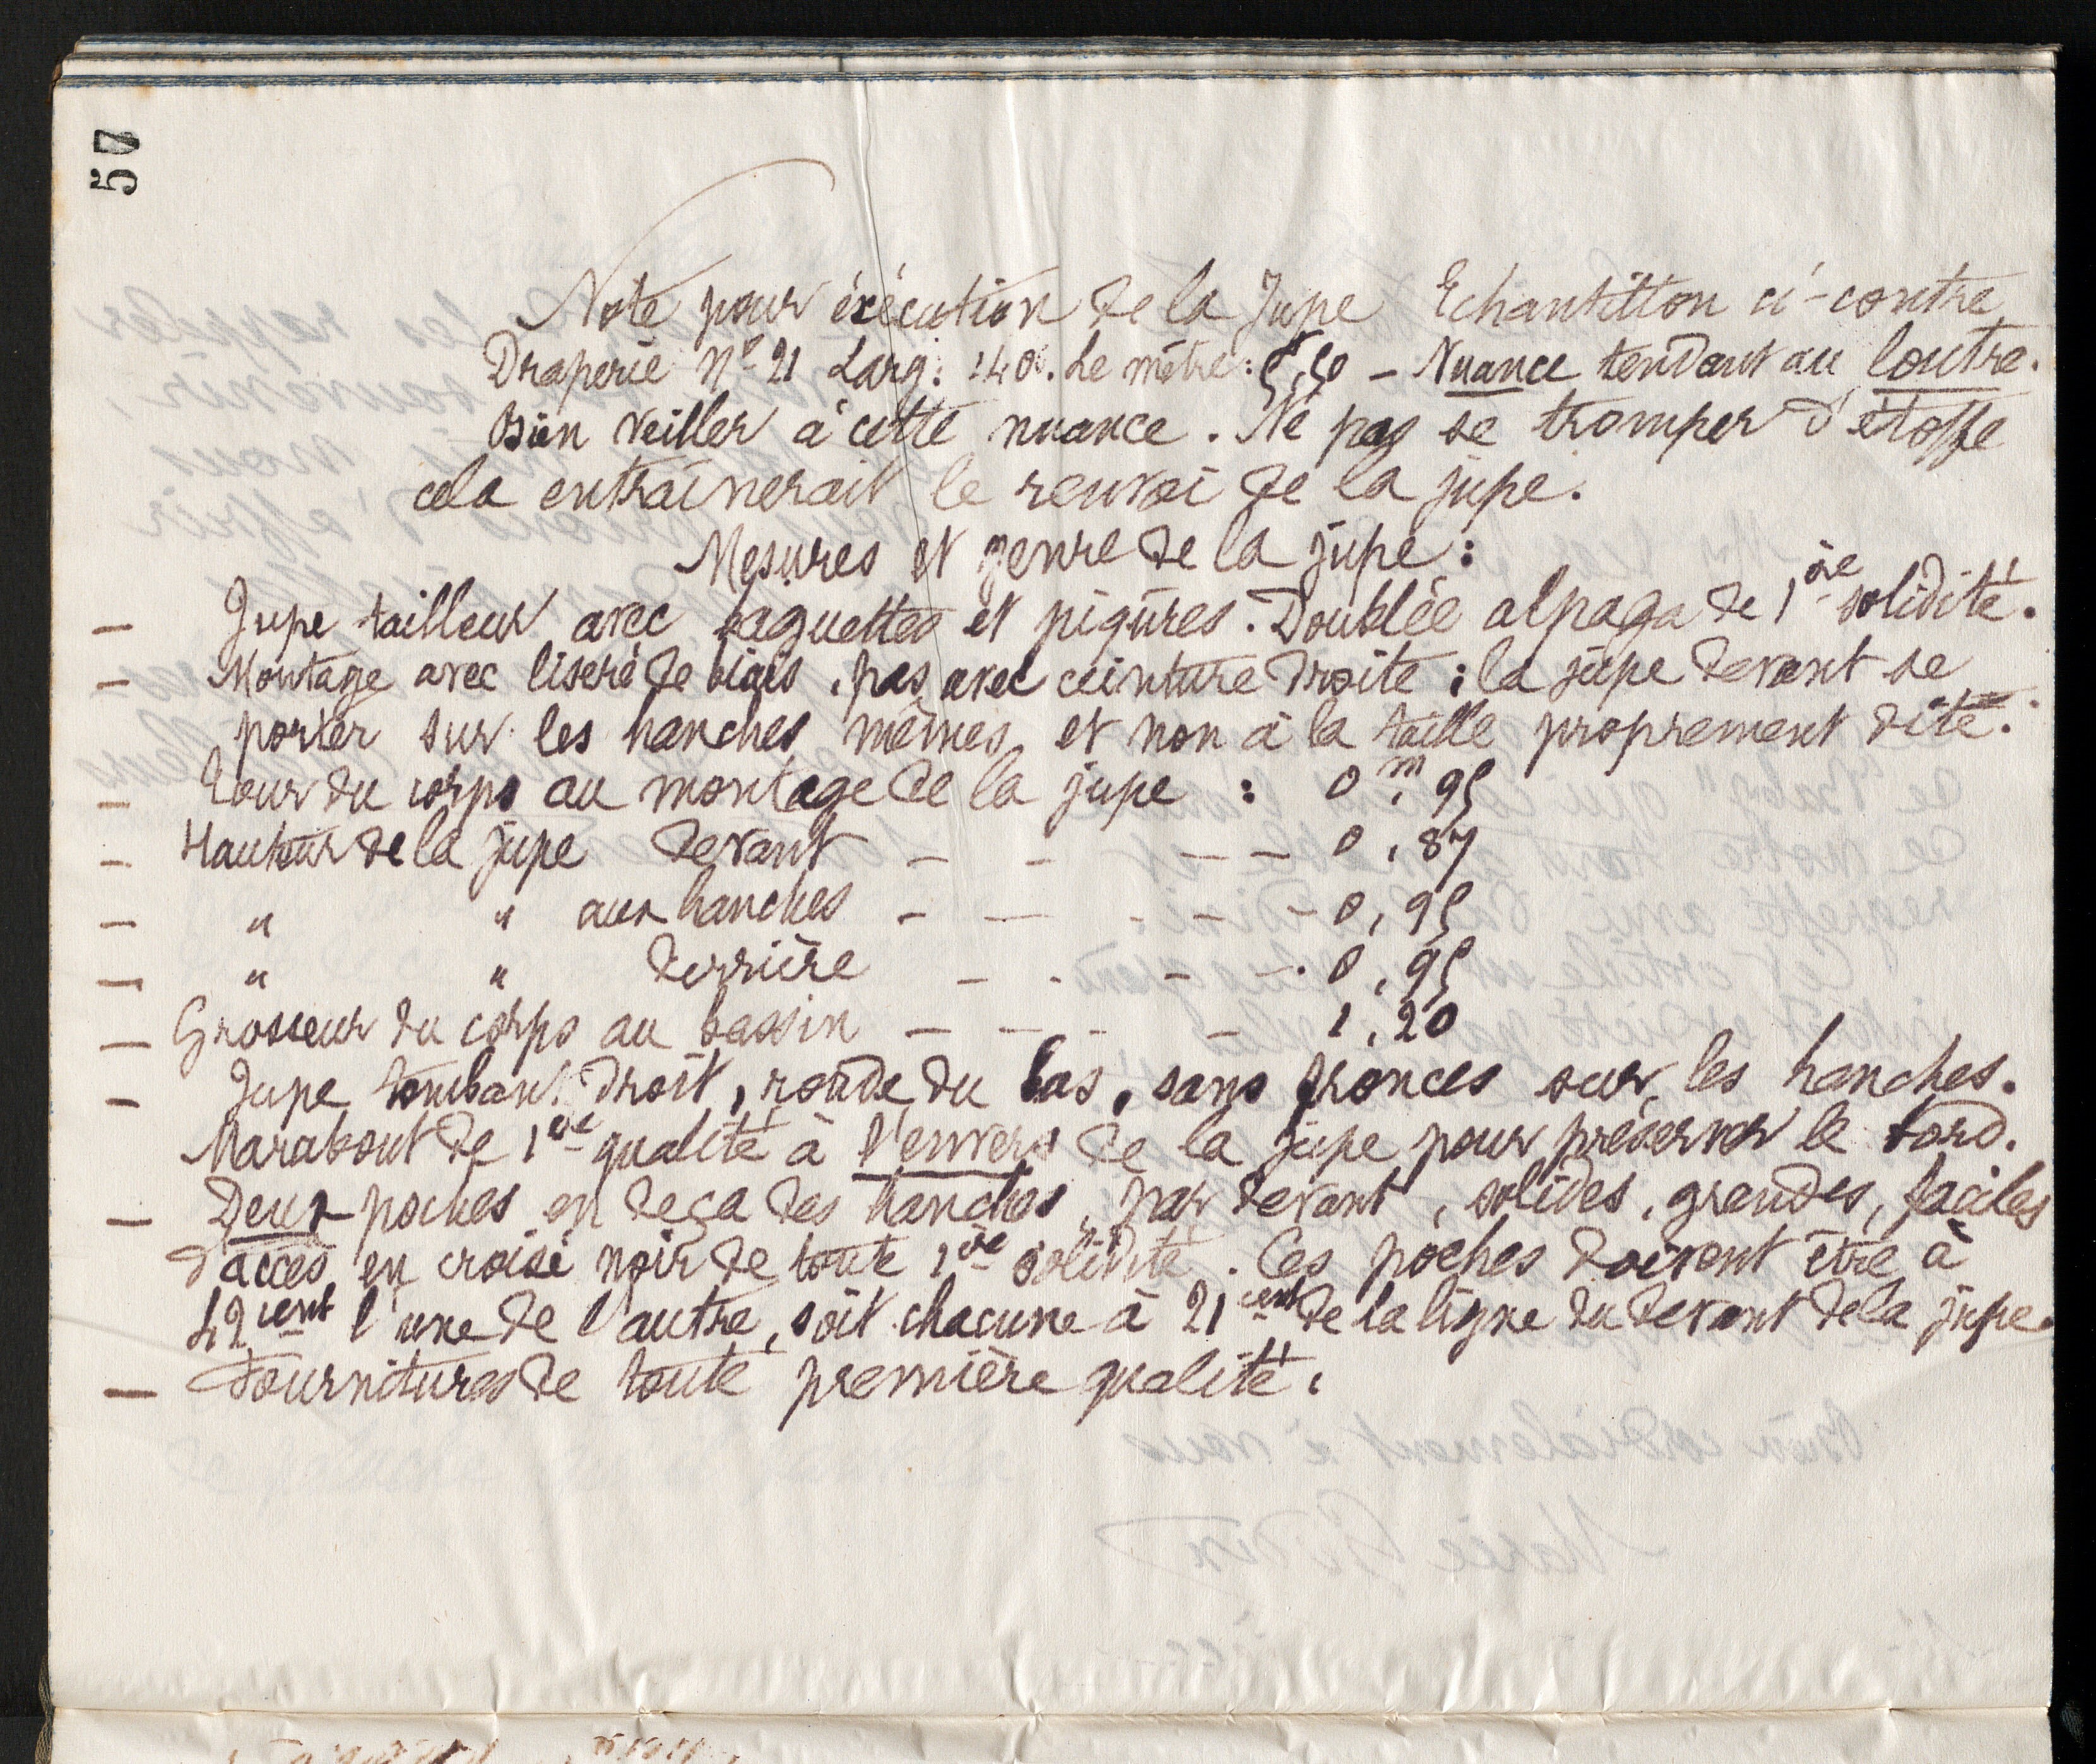 57
Note pour exécution de la Jupe Echantillon ci-contre
Draperie N° 21 Larg: 140. Le mètre: 5f,50 – Nuance tendant au loutre.
Bien veiller à cette nuance. Ne pas se tromper d'étoffe
cela entraînerait le renvoi de la jupe.
Mesures et genre de la jupe :
– Jupe tailleur avec baguettes et piqûres. Doublée alpaga de 1ère solidité.
– Montage avec liseré de biais, pas avec ceinture droite ; la jupe devant se
porter sur les hanches mêmes, et non à la taille proprement dite.
– Tour du corps au montage de la jupe : 0m,95
– Hauteur de la jupe devant – – – – 0,87
– " " aux hanches – – – – – 0,95
– " " derrière – – – – 0,95
– Grosseur du corps au bassin – – – – 1,20
– Jupe tombant droit, ronde du bas, sans fronces sur les hanches.
Marabout de 1ère qualité à l'envers de la jupe pour préserver le bord.
– Deux poches en deça des hanches, par devant, solides, grandes, faciles
d'accès, en croisé noir de toute 1ère solidité. Ces poches doivent être à
42 cent l'une de l'autre, soit chacune à 21 cent de la ligne du devant de la jupe.
– Fournitures de toute première qualité.